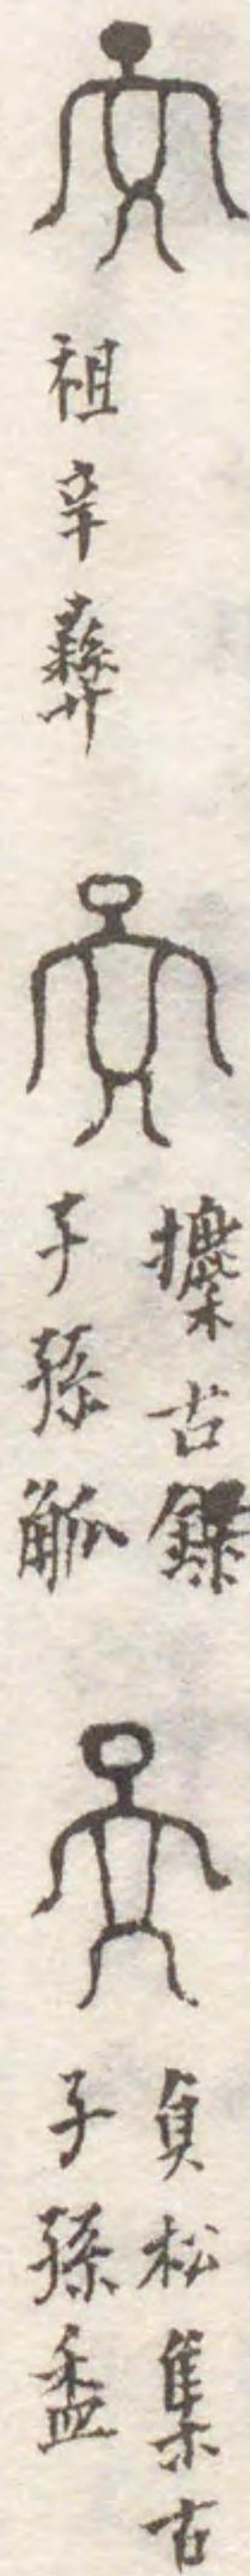 祖辛彝
攗古錄
子孫觚
貞松集古
子孫盉